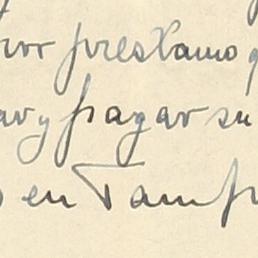 por prestamo
y pagar su
en Tam